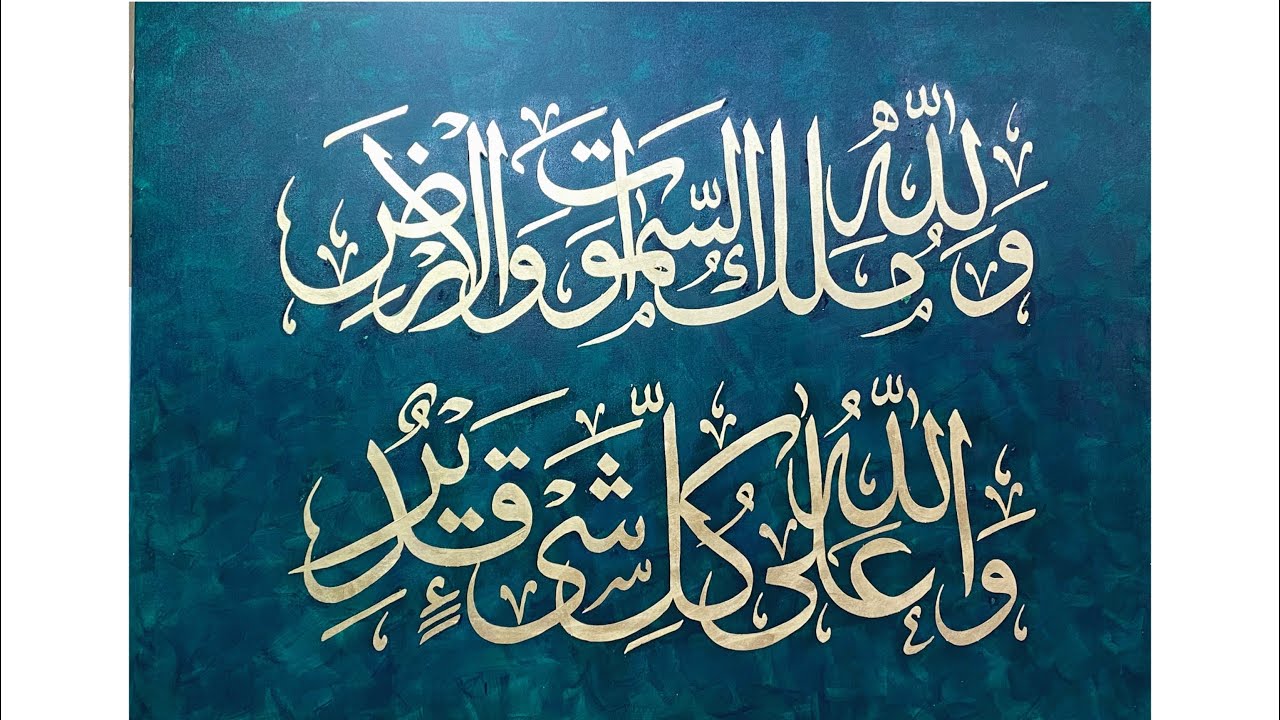 وَلِلّٰهِ مُلْكُ السَّمٰوَاتِ وَالْاَرْضِ
وَاللّٰهُ عَلٰى كُلِّ شَىْءٍ قَدِيْرٌ